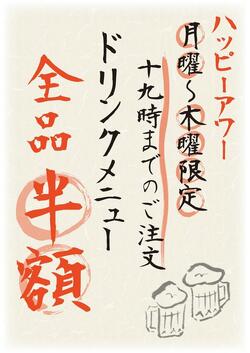 ハッピーアワー
月曜～木曜限定
十九時までのご注文
ドリンクメニュー
全品半額